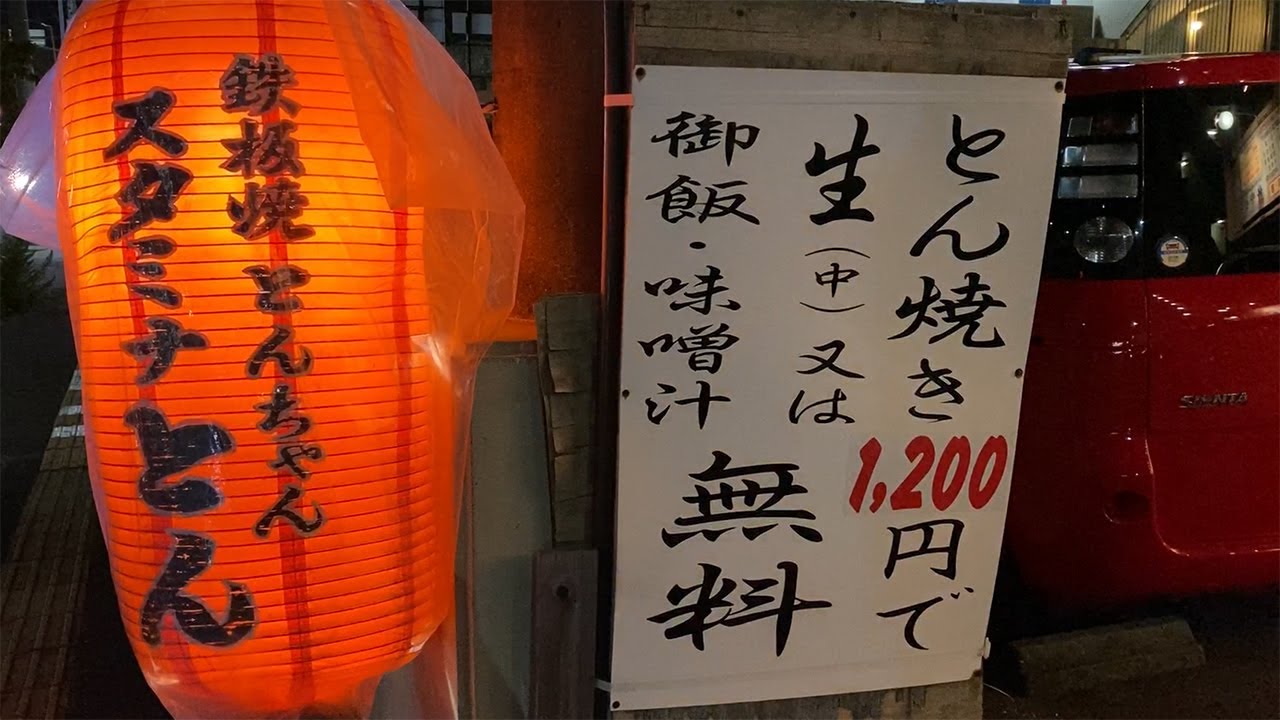 鉄板焼 とんちゃん
スタミナとん
とん焼き1,200円で
生(中)又は
御飯・味噌汁
無料
SIENTA